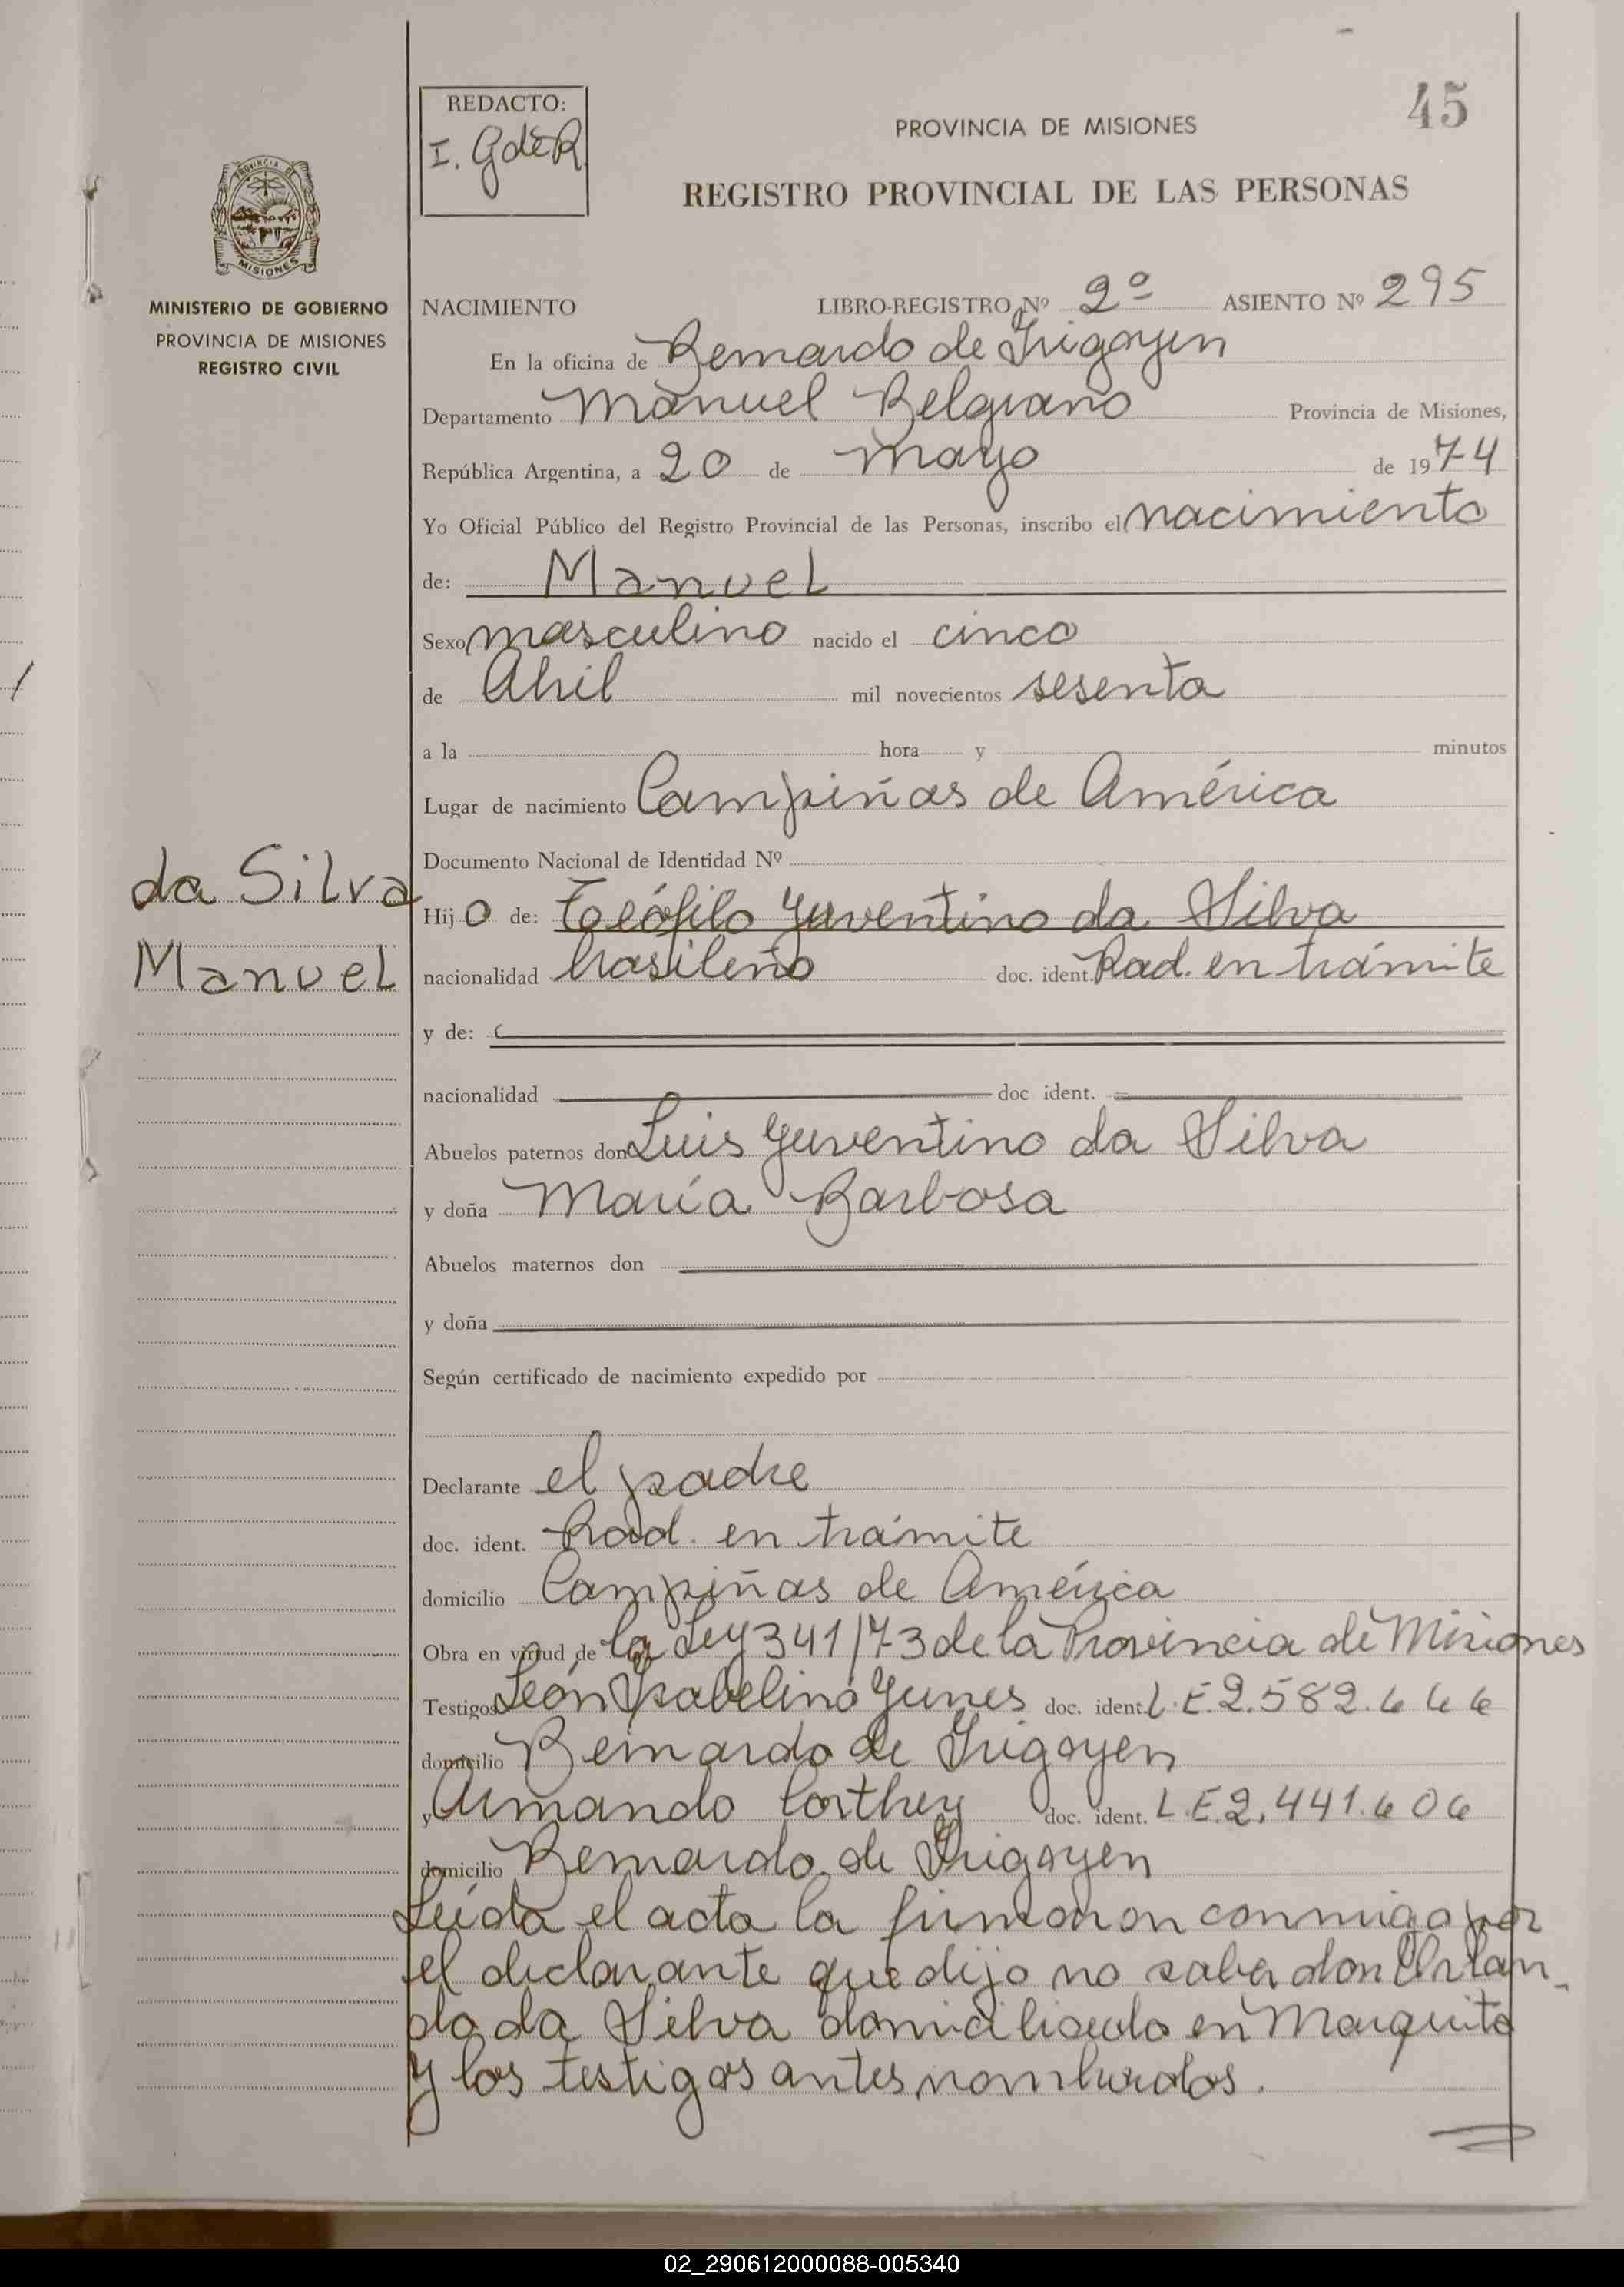 45
REDACTO:
I. GdeR
PROVINCIA DE MISIONES
REGISTRO PROVINCIAL DE LAS PERSONAS
PROVINCIA DE
MISIONES
MINISTERIO DE GOBIERNO
PROVINCIA DE MISIONES
REGISTRO CIVIL
NACIMIENTO LIBRO-REGISTRO Nº 2º ASIENTO Nº 295
En la oficina de Bernardo de Irigoyen
Departamento Manuel Belgrano Provincia de Misiones,
República Argentina, a 20 de mayo de 1974
Yo Oficial Público del Registro Provincial de las Personas, inscribo el nacimiento
de: Manuel
Sexo masculino nacido el cinco
de Abril mil novecientos sesenta
a la hora y minutos
Lugar de nacimiento Campiñas de América
Documento Nacional de Identidad Nº
da Silva
Manuel
Hijo de: Teófilo Yuventino da Silva
nacionalidad brasileño doc. ident. Rad. en trámite
y de:
nacionalidad doc ident.
Abuelos paternos don Luis Yuventino da Silva
y doña María Barbosa
Abuelos maternos don
y doña
Según certificado de nacimiento expedido por
Declarante el padre
doc. ident. Rad. en trámite
domicilio Campiñas de América
Obra en virtud de la Ley 341/73 de la Provincia de Misiones
Testigos León Isabelino Yunes doc. ident. L.E.2.582.646
domicilio Bernardo de Irigoyen
y Armando Corthey doc. ident. L.E.2.441.606
domicilio Bernardo de Irigoyen
Leída el acta la firmaron conmigo por
el declarante que dijo no saber don Orlan-
do da Silva domiciliado en Marquito
y los testigos antes nombrados.
02_290612000088-005340